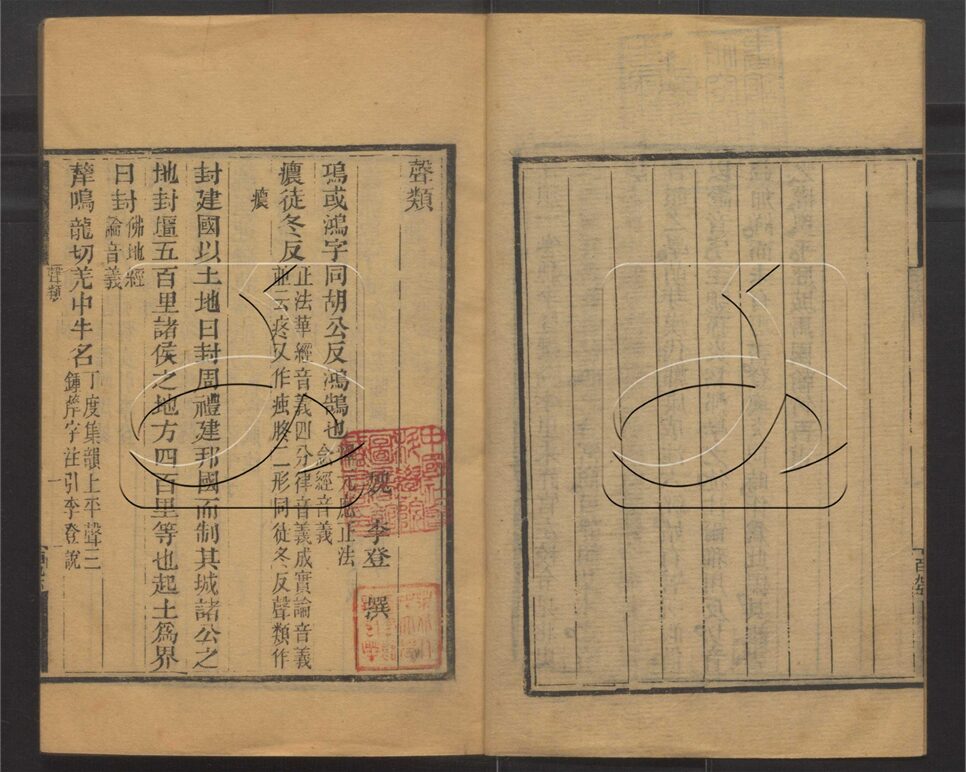 聲類
魏 李登 撰
鳿或鴻字同胡公反鴻鵠也
元應正法
念經音義
癑徒冬反
正法華經音義四分律音義成實論音義
並云疼又作痋胨二形同徒冬反聲類作
癑
封建國以土地曰封周禮建邦國而制其城諸公之
地封壃五百里諸侯之地方四百里等也起土爲界
曰封
佛地經
論音義
犛鳴龍切羌中牛名
丁度集韻上平聲三
鍾犛字注引李登說
聲類
一